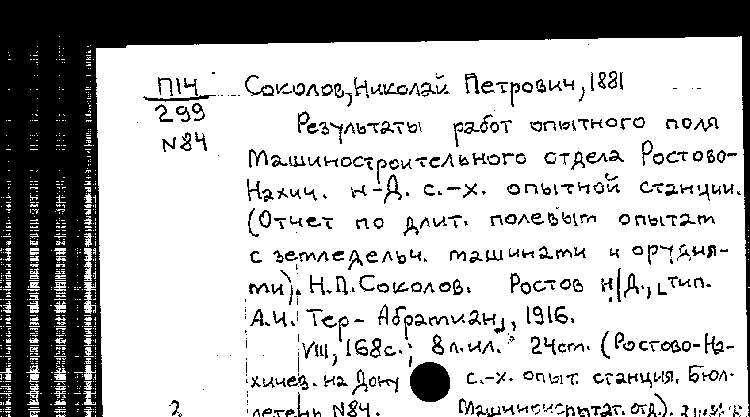 П14 Соколов, Николай Петрович, 1881
299 Результаты работ опытного поля
N84
Машиностроительного отдела Ростово-
Нахич. н-Д. с.-х. опытной станции.
(Отчет по длит. полевым опытам
с земледельч. машинами и орудия-
ми). Н.П.Соколов. Ростов н/Д., тип.
А.И. Тер-Абрамиан, 1916.
VIII, 168с.; 8 л.ил. 24см. (Ростово-На-
хичев. на Дону с.-х. опыт. станция. Бюл-
2 летень N84. Машиноиспытат. отд.).